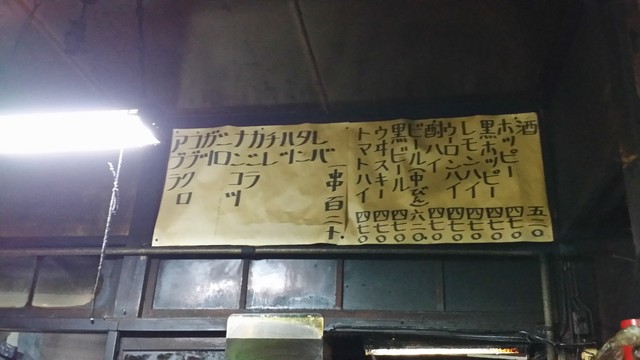 レバ
タン
ハツ
チレ
カシラ
ナンコツ
シロ
ガツ
コブクロ
アブラ
一串百二十.
酒 五二〇
ホッピー 四七〇
黒ホッピー 四七〇
レモンハイ 四七〇
ウーロンハイ 四七〇
酎ハイ 四七〇
ビール(中びん) 六二〇
黒ビール 四七〇
ウヰスキー 四七〇
トマトハイ 四七〇